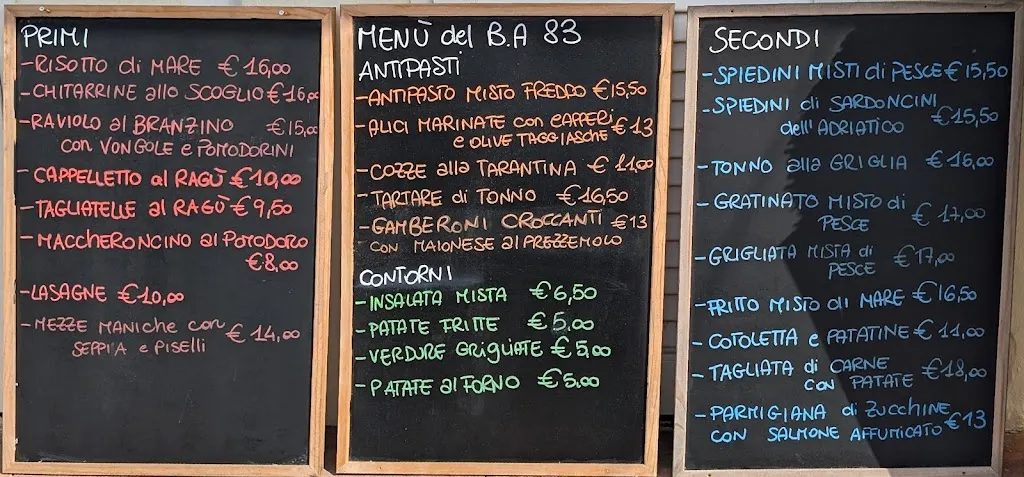 PRIMI
-RISOTTO di MARE €16,00
-CHITARRINE allo SCOGLIO €16,00
-RAVIOLO al BRANZINO €15,00
con VONGOLE e POMODORINI
-CAPPELLETTO al RAGÙ €10,00
-TAGLIATELLE al RAGÙ €9,50
-MACCHERONCINO al POMODORO
€8,00
-LASAGNE €10,00
-MEZZE MANICHE con €14,00
SEPPIA e PISELLI
MENÙ del B.A 83
ANTIPASTI
-ANTIPASTO MISTO FREDDO €15,50
-ALICI MARINATE con CAPPERI €13
e OLIVE TAGGIASCHE
-COZZE alla TARANTINA €11,00
-TARTARE di TONNO €16,50
-GAMBERONI CROCCANTI €13
CON MAIONESE al PREZZEMOLO
CONTORNI
-INSALATA MISTA €6,50
-PATATE FRITTE €5,00
-VERDURE GRIGLIATE €5,00
-PATATE al FORNO €5,00
SECONDI
-SPIEDINI MISTI di PESCE €15,50
-SPIEDINI di SARDONCINI €15,50
dell'ADRIATICO
-TONNO alla GRIGLIA €16,00
-GRATINATO MISTO di €17,00
PESCE
-GRIGLIATA MISTA di €17,00
PESCE
-FRITTO MISTO di MARE €16,50
-COTOLETTA e PATATINE €11,00
-TAGLIATA di CARNE €18,00
CON PATATE
-PARMIGIANA di ZUCCHINE €13
CON SALMONE AFFUMICATO